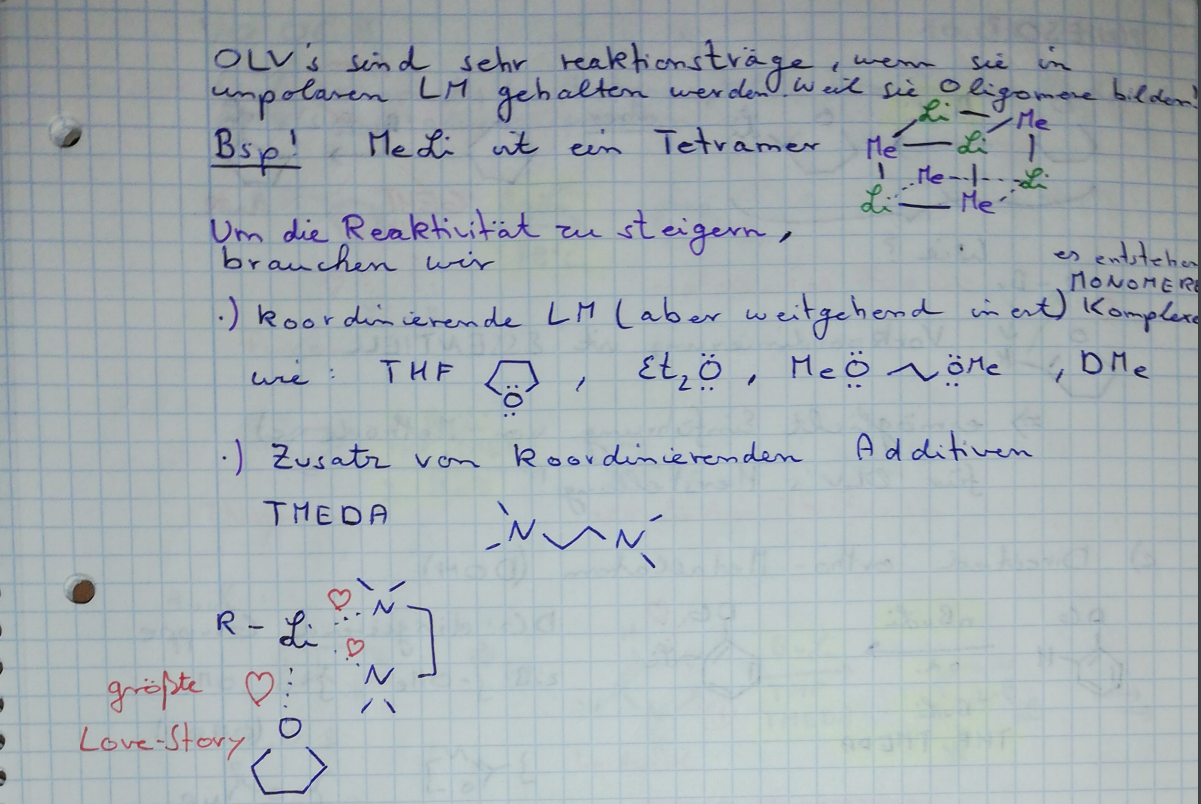 OLV's sind sehr reaktionsträge, wenn sie in
unpolaren LM gehalten werden. Weil sie Oligomere bilden!
Bsp! MeLi ist ein Tetramer
Li Me
Me Li
Me Li
Li Me
Um die Reaktivität zu steigern,
brauchen wir
es entstehen
MONOMERE
·) koordinierende LM (aber weitgehend inert) Komplexe
wie: THF O, Et₂O, MeO OMe, DMe
·) Zusatz von koordinierenden Additiven
TMEDA N N
R - Li N
N
größte
O
Love-Story